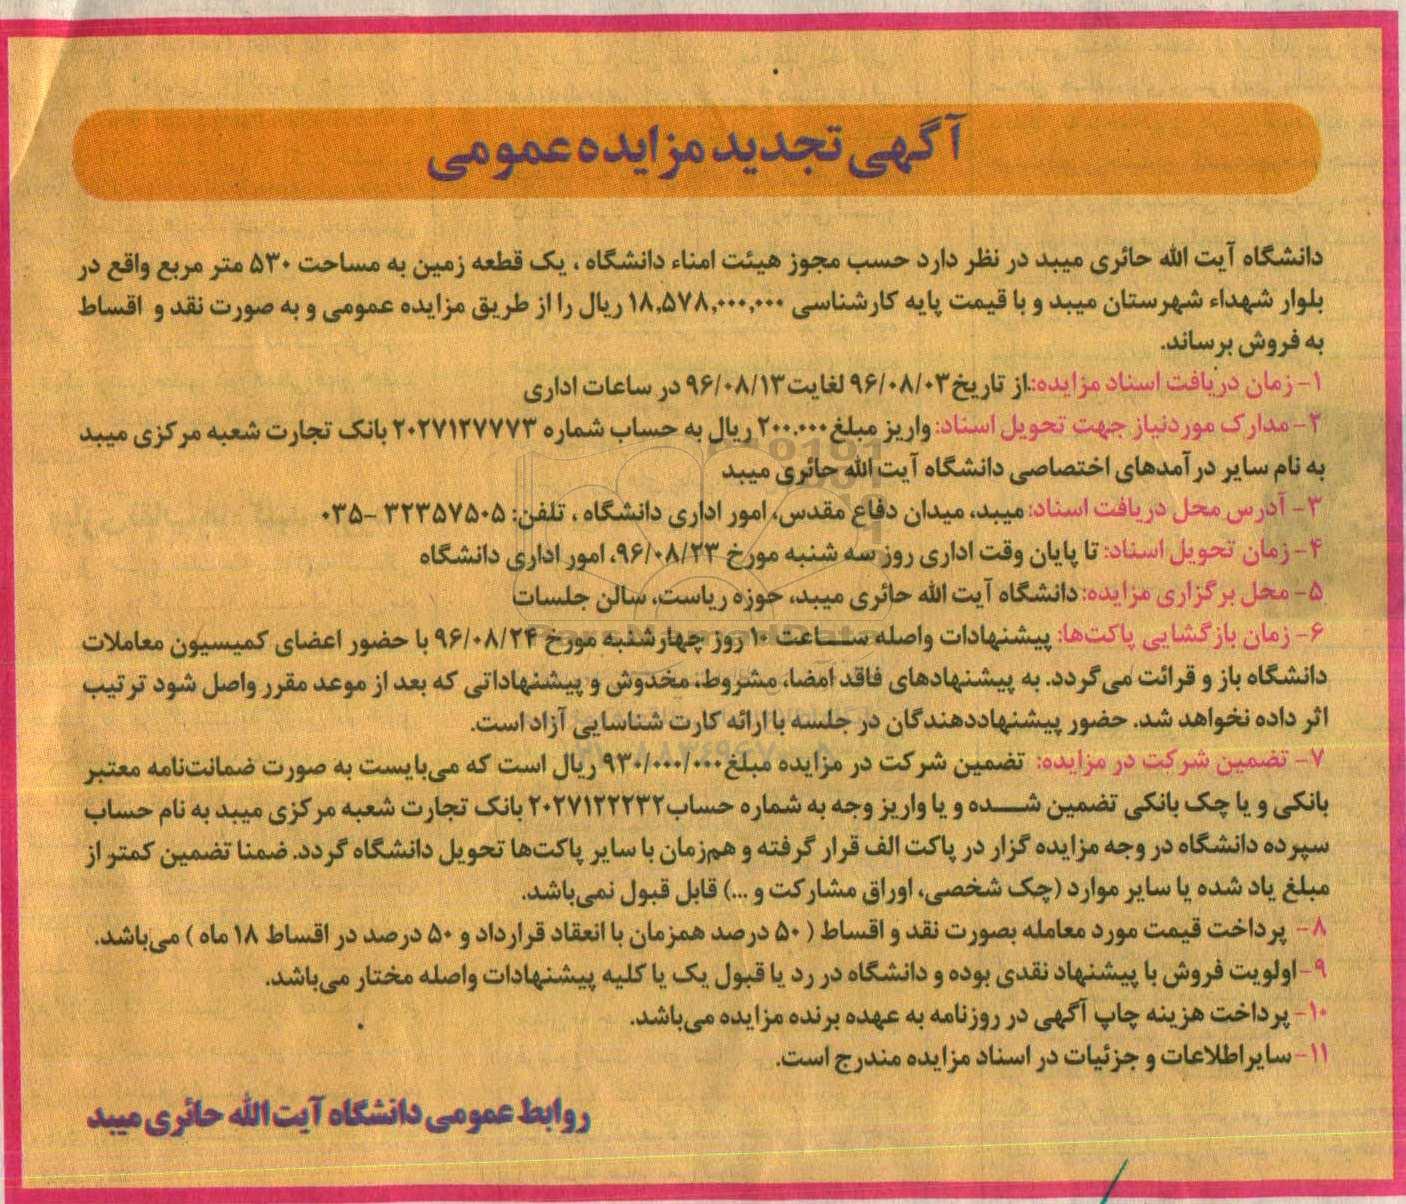 آگهی تجدید مزایده عمومی
دانشگاه آیت الله حائری میبد در نظر دارد حسب مجوز هیئت امناء دانشگاه ، یک قطعه زمین به مساحت ۵۳۰ متر مربع واقع در
بلوار شهداء شهرستان میبد و با قیمت پایه کارشناسی ۱۸,۵۷۸,۰۰۰,۰۰۰ ریال را از طریق مزایده عمومی و به صورت نقد و اقساط
به فروش برساند.
۱- زمان دریافت اسناد مزایده: از تاریخ ۹۶/۰۸/۰۳ لغایت ۹۶/۰۸/۱۳ در ساعات اداری
۲- مدارک موردنیاز جهت تحویل اسناد: واریز مبلغ ۲۰۰.۰۰۰ ریال به حساب شماره ۲۰۲۷۱۲۷۷۷۳ بانک تجارت شعبه مرکزی میبد
به نام سایر درآمدهای اختصاصی دانشگاه آیت الله حائری میبد
۳- آدرس محل دریافت اسناد: میبد، میدان دفاع مقدس، امور اداری دانشگاه ، تلفن: ۳۲۳۵۷۵۰۵ -۰۳۵
۴- زمان تحویل اسناد: تا پایان وقت اداری روز سه شنبه مورخ ۹۶/۰۸/۲۳، امور اداری دانشگاه
۵- محل برگزاری مزایده: دانشگاه آیت الله حائری میبد، حوزه ریاست، سالن جلسات
۶- زمان بازگشایی پاکت‌ها: پیشنهادات واصله ساعت ۱۰ روز چهارشنبه مورخ ۹۶/۰۸/۲۴ با حضور اعضای کمیسیون معاملات
دانشگاه باز و قرائت می‌گردد. به پیشنهادهای فاقد امضا، مشروط، مخدوش و پیشنهاداتی که بعد از موعد مقرر واصل شود ترتیب
اثر داده نخواهد شد. حضور پیشنهاددهندگان در جلسه با ارائه کارت شناسایی آزاد است.
۷- تضمین شرکت در مزایده: تضمین شرکت در مزایده مبلغ ۹۳۰/۰۰۰/۰۰۰ ریال است که می‌بایست به صورت ضمانت‌نامه معتبر
بانکی و یا چک بانکی تضمین شده و یا واریز وجه به شماره حساب ۲۰۲۷۱۲۲۲۳۲ بانک تجارت شعبه مرکزی میبد به نام حساب
سپرده دانشگاه در وجه مزایده گزار در پاکت الف قرار گرفته و هم‌زمان با سایر پاکت‌ها تحویل دانشگاه گردد. ضمنا تضمین کمتر از
مبلغ یاد شده یا سایر موارد (چک شخصی، اوراق مشارکت و ...) قابل قبول نمی‌باشد.
۸- پرداخت قیمت مورد معامله بصورت نقد و اقساط ( ۵۰ درصد همزمان با انعقاد قرارداد و ۵۰ درصد در اقساط ۱۸ ماه ) می‌باشد.
۹- اولویت فروش با پیشنهاد نقدی بوده و دانشگاه در رد یا قبول یک یا کلیه پیشنهادات واصله مختار می‌باشد.
۱۰- پرداخت هزینه چاپ آگهی در روزنامه به عهده برنده مزایده می‌باشد.
۱۱- سایر اطلاعات و جزئیات در اسناد مزایده مندرج است.
روابط عمومی دانشگاه آیت الله حائری میبد